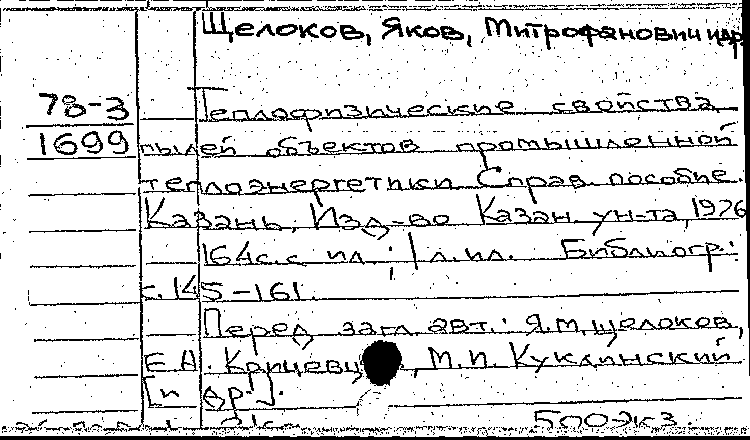 Щелоков, Яков, Митрофанович идр
78-3 Теплофизические свойства
1699 пылей объектов промышленной
теплоэнергетики Справ. пособие.
Казань, Изд-во Казан. ун-та, 1976
164с.с ил.; 1 л.ил. Библиогр:
с. 145-161.
Перед загл. авт.: Я.М.Щелоков,
Е.А. М.И. Куклинский
[и др.].
500экз.